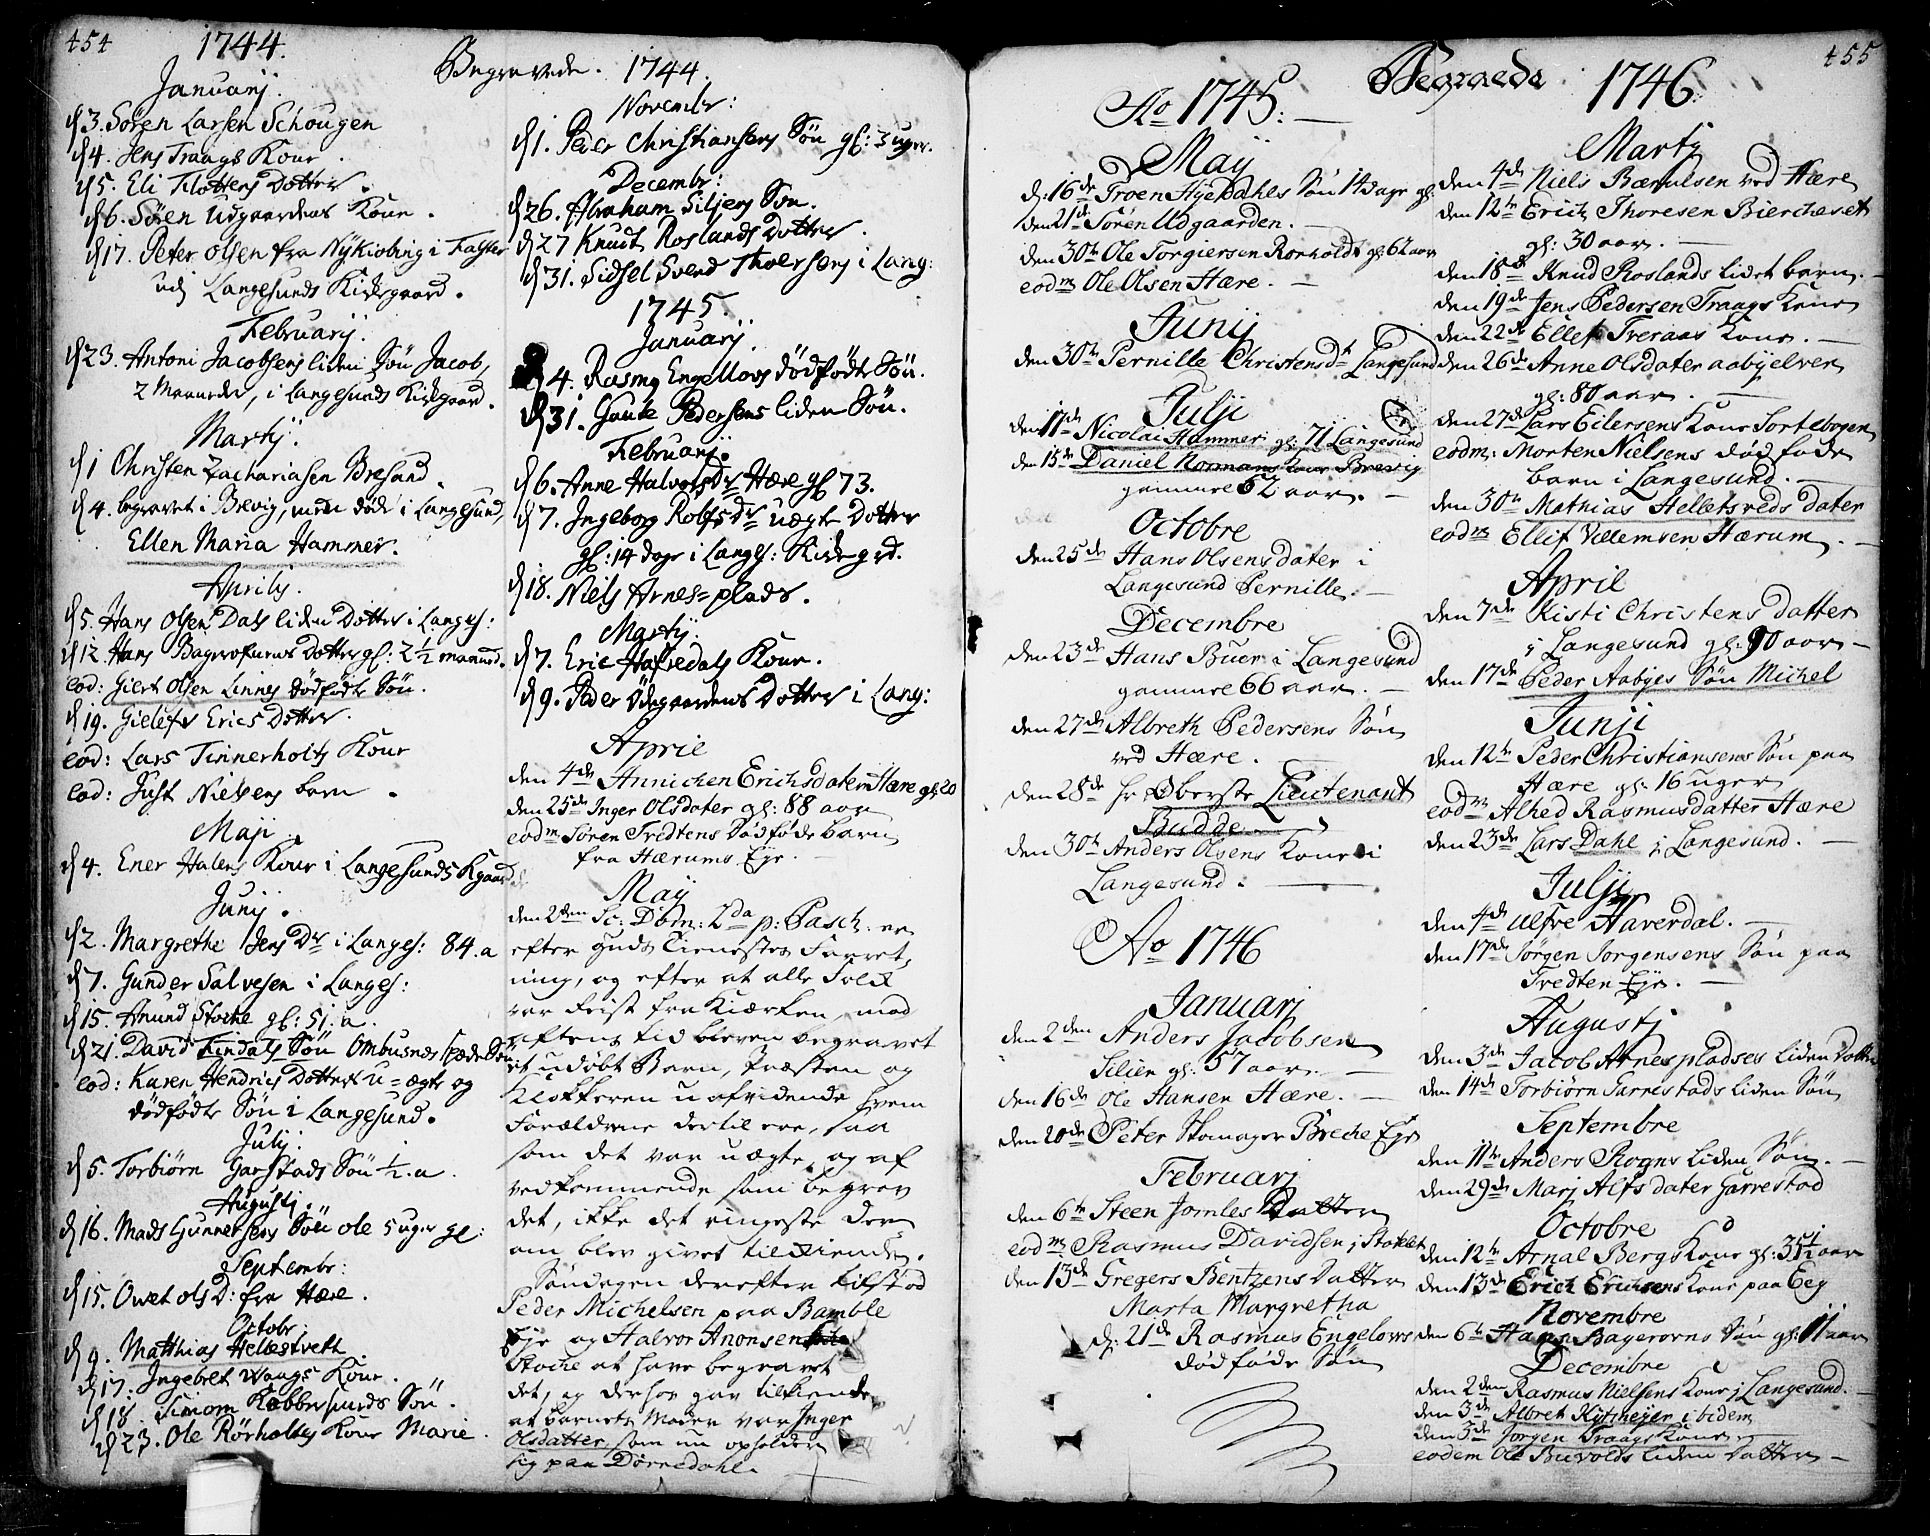 454
1744.
Begravede. 1744.
Januarij.
d 3. Sören Larsen Schougen
d 4. Jens Traags Kone.
d 5. Eli Flottens Dotter.
d 6. Sören Udgaardens Kone.
d 17. Peter Olsen fra Nykiobing i Falster
udj Langesunds Kirkegaard.
Februarij.
d 23. Antoni Jacobsens liden Sön Jacob,
2 Maaneder, i Langesunds Kirkegaard.
Martij.
d 1 Christen Zachariasen Bresund.
d 4. begravet i Brevig, men döde i Langesund,
Ellen Maria Hammer.
Aprilis.
d 5. Hans Olsen Dals liden Dotter i Langes:
d 12 Hans Bagerovnens Dotter gl: 2 1/2 maaned.
eod: Giert Olsen Linnes dödfödte Sön.
d 19. Gielefs Erics Dotter.
eod: Lars Tinnerholts Kone
eod: Just Nielsens barn.
Maji.
d 4. Ener Halens Kone i Langesunds Kgaard
Junij.
d 2. Margrethe Jens Dr i Langes: 84. a
d 7. Gunder Salvesen i Langes:
d 15. Anund Stocke gl: 51. a.
d 21. David Findals Sön Ombusnes spæde Sön
eod: Karen Hendrics Dotters u=ægte og
dödfödte Sön i Langesund.
Julij.
d 5. Torbiörn Garstads Sön 1/2. a.
Augustj.
d 16. Mads Gunnersens Sön Ole 5 uger gl:
Septembr:
d 15. Omet Ols D: fra Hære.
Octobr.
d 9. Matthias Hellestveth.
d 17. Ingebret Waags Kone.
d 18. Simon Kobbersunds Sön.
d 23. Ole Rörholts Kone Marie.
Novembr:
d 1. Peder Christiansens Sön gl: 3 uger.
Decembr:
d 26. Abraham Siljens Sön.
d 27 Knudt Roslands Dotter.
d 31. Sidsel Svend Thoersens i Lang:
1745.
Januarij.
d 4. Rasmus Engellovs dödfödte Sön.
d 31. Gaute Pedersens liden Sön.
Februarij.
d 6. Anne Halvors Dr Hære gl 73.
d 7. Ingeborg Rolfs Dr uægte Dotter
gl: 14 dage i Langes: Kirkegrd.
d 18. Niels Arnes=plads.
Martij.
d 7. Eric Hafredals Kone.
d 9. Peder Ödegaardens Dotter i Lang:
Aprie
den 4de Annichen Erichsdater Hære gl: 20
den 25de Inger Olsdater gl: 88 aar
eodm Sören Tredtens dödföde barn
fra Hærums Eye.
May
den 2den Sc: Dom: 2da p: Pasch. er
efter Guds Tienestes Forret,
ning, og efter at alle Folk
var reist fra Kiærken, mod
aftens tid bleven begravet
et udöbt Barn, Præsten og
Klokkeren uafvidende hvem
Forældrene dertil ere, saa
som det var uægte, og af
vedkommende som begrov
det, ikke det ringeste der
om blev givet tilkiende.
Söndagen derefter tilstod
Peder Michelsen paa Bamble
Eje og Halvor Anonsen
Stocke at have begravet
det, og derhos gav tilkiende
at barnets Moder var Inger
Olsdatter, som nu opholder
sig paa Dörredahl.
455
Begraede 1746
Ao 1745:
Maij
d: 16de Troen Hyedahls Sön 14 dage gl:
den 21de Sören Udgaarden.
den 30te Ole Torgiersen Rorholdt gl: 62 aar
eodm Ole Olsen Hære.
Junij
den 30te Pernille Christensdt Langesund
Julji
den 11te Nicolai Hammer gl: 71 Langesund
den 15de Daniel Normans Kone Brevig
gammel 62 aar.
Octobre
den 25de Hans Olsens dater i
Langesund Pernille.
Decembre
den 23de Hans Buer i Langesund
gammel 66 aar.
den 27de Albreth Pedersens Sön
ved Hære.
den 28de hr Oberste Lieutenant
Budde
den 30te Anders Olsens Kone i
Langesund.
Ao 1746
Januarj
den 2den Anders Jacobsen
Silien gl: 57 aar.
den 16de Ole Hansen Hære.
den 20de Peter Skomager Breche Eye
Februarj
den 6te Steen Jomles Datter
eodm Rasmus Davidsen i Stoklet
den 13de Gregers Bentzens Datter
Marta Margretha
d: 21de Rasmus Engelovs
dödföde Sön
Martj
den 4de Niels Bærulsen ved Hære
den 12te Erich Thoresen Biercheset
gl: 30 aar.
den 18de Knud Roslands lidet barn.
den 19de Jens Pedersen Traags Kone
den 22de Ellef Treraas Kone.
den 26de Anne Olsdater aabyelven
gl: 80 aar.
den 27de Lars Eilersens Kone Sortebogen
eodm: Morten Nielsens dödföde
barn i Langesund.
den 30te Mathias Helletsveds dater
eodm Ellif Villemsen Hærum.
April
den 7de Kisti Christens datter
i Langesund gl: 90 aar
den 17de Peder Aabyes Sön Michel
Junji
den 12te Peder Christiansens Sön paa
Hære gl: 16 uger
eodm Alhed Rasmusdatter Hære
den 23de Lars Dahl i Langesund.
Julji
den 4de Ulfre Haverdal.
den 17de Jörgen Jorgensens Sön paa
Tredten Eje.
Augustj
den 3de Jacob Arnespladses liden Datter
den 14de Torbiörn Jarrestads liden Sön
Septembre
den 11te Anders Rogns liden Sön.
den 29de Marj Alfs dater Garrestad
Octobre
den 12te Arnal Bergs Kone gl: 35 1/2 aar
den 13de Erich Erichsens Kone paa Eeg
Novembre
den 6te Hans Bagerovns Sön gl: 11 aar
Decembre
den 2den Rasmus Nielsens Kone i Langesund.
den 3de Albret Kitmejer ibidem
den 3de Jörgen Traags Kone
eodem Ole Buvolds liden Datter